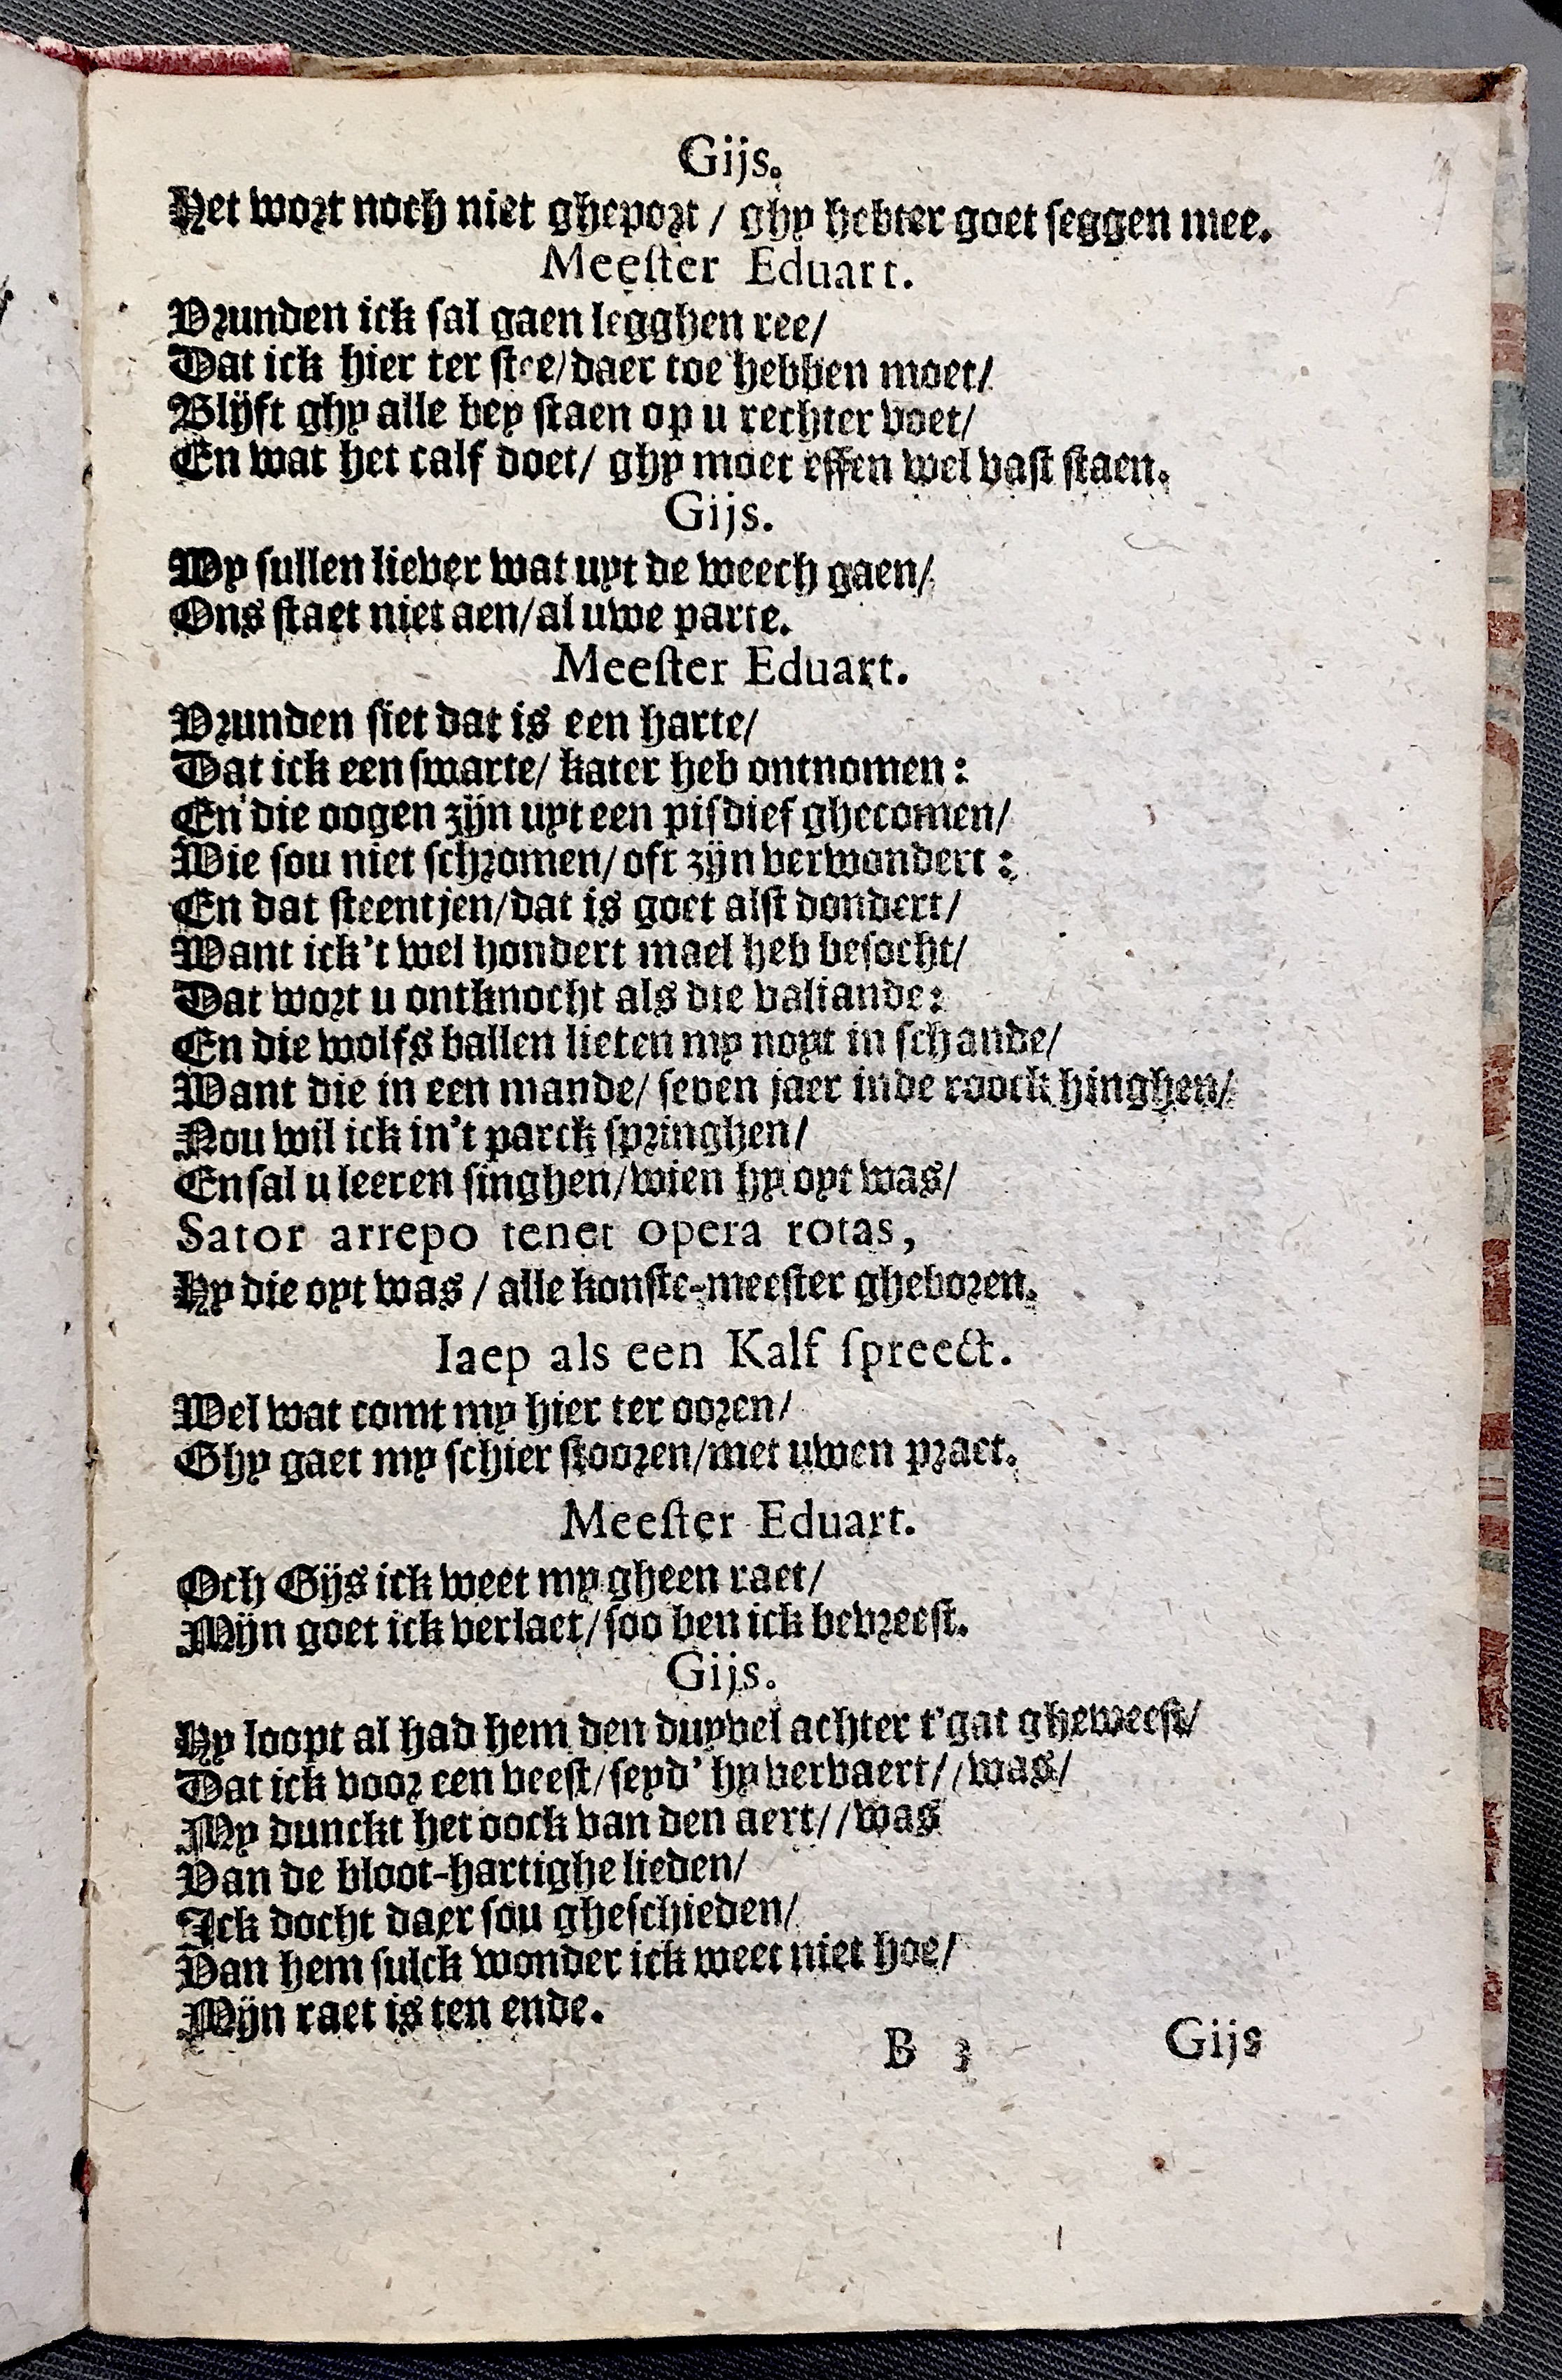 Gijs.
Het wort noch niet gheport / ghy hebter goet seggen mee.
Meester Eduart.
Vrunden ick sal gaen legghen ree/
Dat ick hier ter stee/daer toe hebben moet/
Blijft ghy alle bey staen op u rechter voet/
En wat het calf doet/ ghy moet effen wel vast staen.
Gijs.
Wy sullen liever wat uyt de weech gaen/
Ons staet niet aen/al uwe parte.
Meester Eduart.
Vrunden siet dat is een harte/
Dat ick een swarte/ kater heb ontnomen:
En die oogen zijn uyt een pisdief ghecomen/
Wie sou niet schromen/oft zijn verwondert:
En dat steentjen/dat is goet alst dondert/
Want ick't wel hondert mael heb besocht/
Dat wort u ontknocht als die valiande:
En die wolfs ballen lieten my noyt in schande/
Want die in een mande/ seven jaer inde roock hinghen/
Nou wil ick in't parck springhen/
En sal u leeren singhen/wien hy oyt was/
Sator arrepo tenet opera rotas,
Hy die oyt was / alle konste-meester gheboren.
Iaep als een Kalf spreect.
Wel wat comt my hier ter ooren/
Ghy gaet my schier stooren/met uwen praet.
Meester Eduart.
Och Gijs ick weet my gheen raet/
Mijn goet ick verlaet/soo ben ick bevreest.
Gijs.
Hy loopt al had hem den duyvel achter t'gat gheweest/
Dat ick voor een veest/seyd' hy vervaert//was/
My dunckt het oock van den aert//was
Van de bloot-hartighe lieden/
Ick docht daer sou gheschieden/
Van hem sulck wonder ick weet niet hoe/
Mijn raet is ten ende.
B 3 Gijs